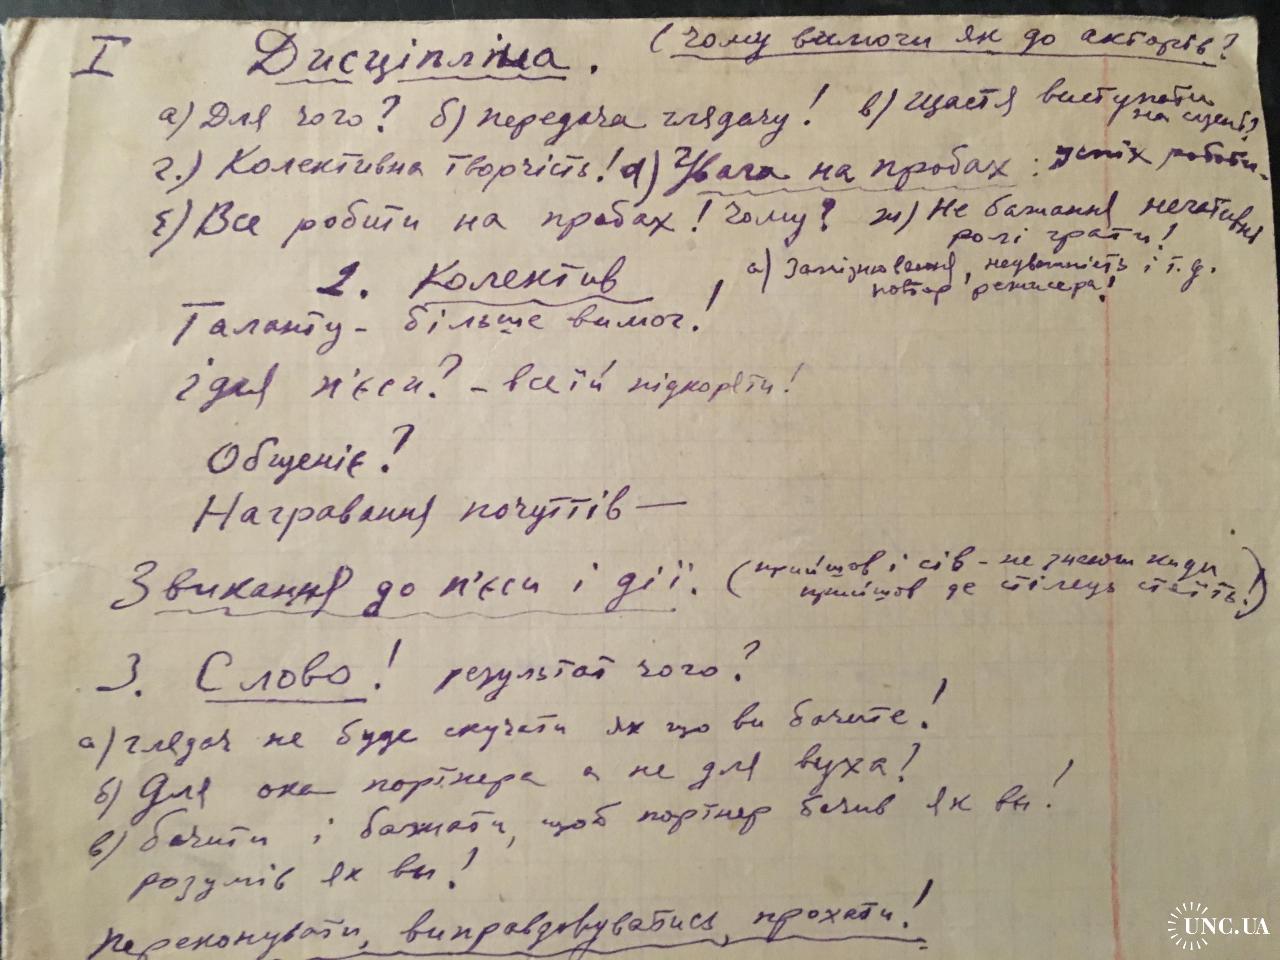 I Дисципліна. (чому вимоги як до акторів?
а) Для чого? б) передача глядачу! в) щастя виступати на сцені?
г.) Колективна творчість! д) Увага на пробах: успіх роботи.
є) Все робити на пробах! Чому? ж) Не бажання негативні
ролі грати!
2. Колектив
а) Запізнювання, неуважність і т.д.
повтор режисера!
Таланту - більше вимог!
Ідея п'єси? - все їй підкоряти!
Общеніє?
Награвання почуттів —
Звикання до п'єси і дії. (прийшов і сів - не знаючи куди
прийшов де стілець стоїть!)
3. Слово! результат чого?
а) глядач не буде скучати як що ви бачите!
б) Для ока портнера а не для вуха!
в) бачити і бажати, щоб портнер бачив як вы!
розумів як вы!
переконувати, виправдовуватись, прохати!
UNC.UA